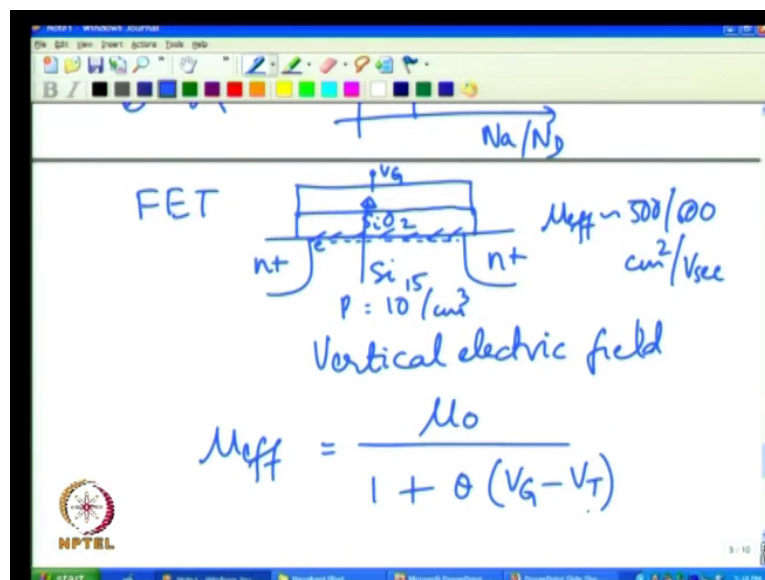 Note1 - Windows Journal
File Edit View Insert Actions Tools Help
B I
Na/ND
FET
VG
SiO2
n+
e
n+
Si
P = 10^15/cm^3
μeff ~ 500/600
cm^2/Vsec
Vertical electric field
μeff = μ0 / 1 + θ (VG - VT)
NPTEL
9/10
start